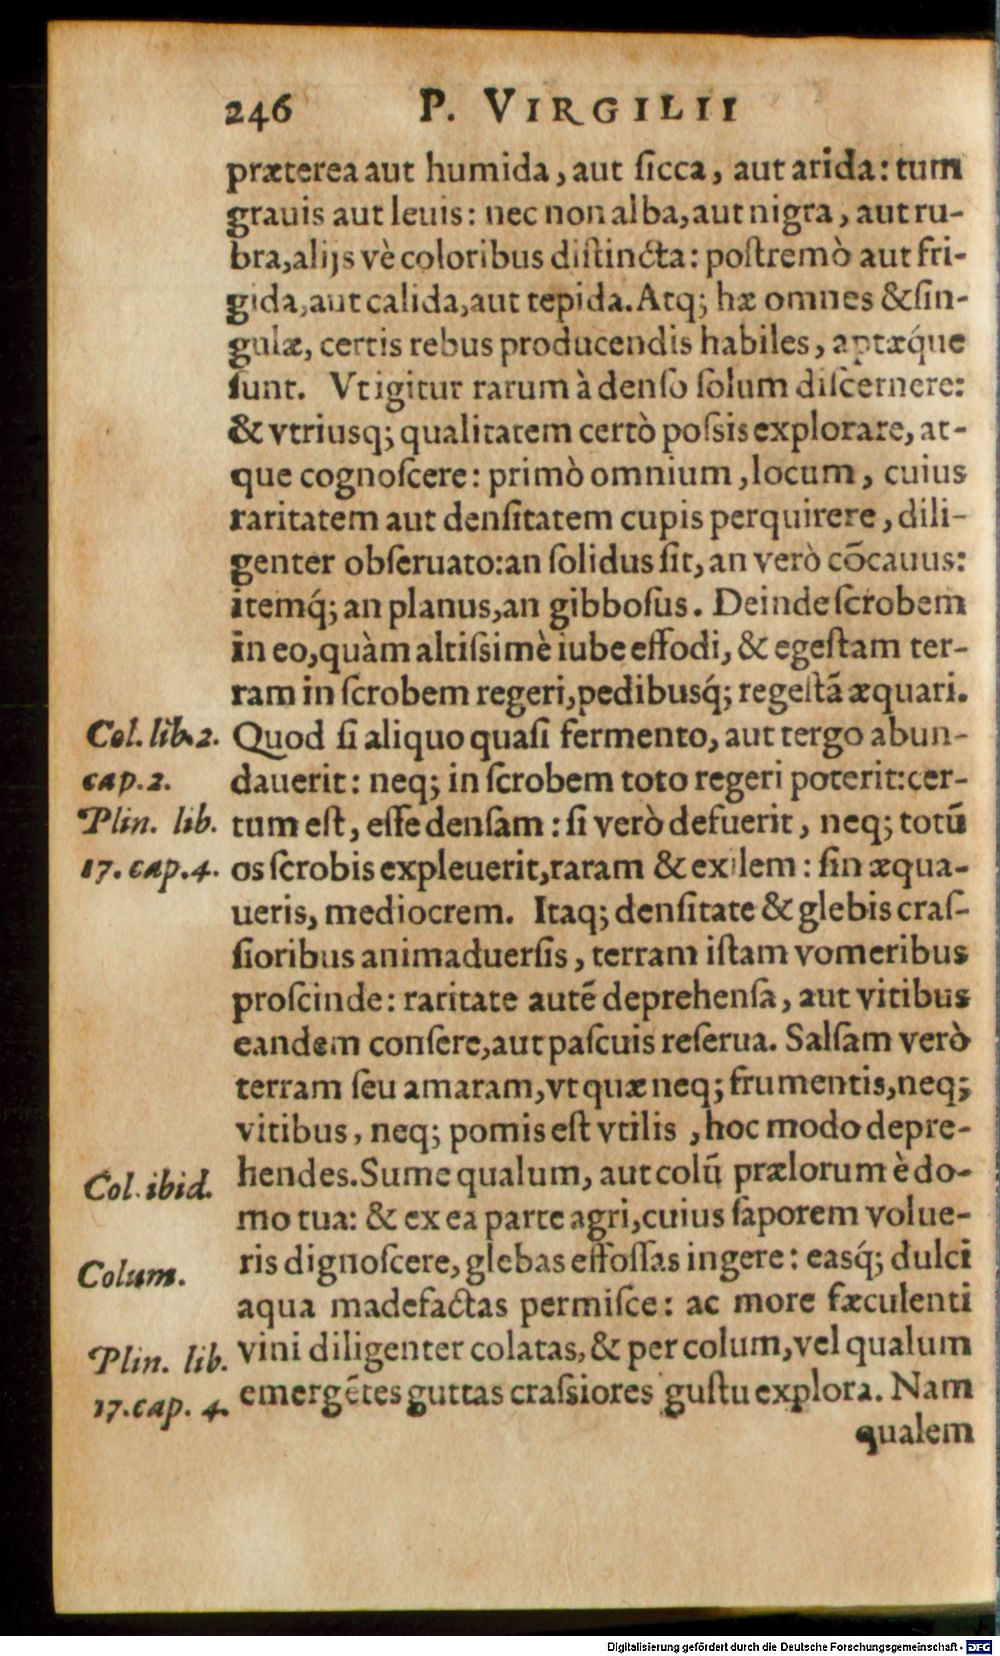 246 P. VIRGILII
præterea aut humida, aut ſicca, aut arida: tum
grauis aut leuis: nec non alba, aut nigra, aut ru-
bra, alijs vè coloribus diſtincta: poſtremò aut fri-
gida, aut calida, aut tepida. Atq; hæ omnes & ſin-
gulæ, certis rebus producendis habiles, aptæq́ue
ſunt. Vt igitur rarum à denſo ſolum diſcernere:
& vtriusq; qualitatem certò poſsis explorare, at-
que cognoſcere: primò omnium, locum, cuius
raritatem aut denſitatem cupis perquirere, dili-
genter obſeruato: an ſolidus ſit, an verò cõcauus:
itemq́; an planus, an gibboſus. Deinde ſcrobem
in eo, quàm altiſsimè iube effodi, & egeſtam ter-
ram in ſcrobem regeri, pedibusq́; regeſtã æquari.
Col. lib. 2. Quod ſi aliquo quaſi fermento, aut tergo abun-
cap. 2. dauerit: neq; in ſcrobem toto regeri poterit: cer-
Plin. lib. tum eſt, eſſe denſam: ſi verò defuerit, neq; totũ
17. cap. 4. os ſcrobis expleuerit, raram & exilem: ſin æqua-
ueris, mediocrem. Itaq; denſitate & glebis craſ-
ſioribus animaduerſis, terram iſtam vomeribus
proſcinde: raritate autẽ deprehenſa, aut vitibus
eandem conſere, aut paſcuis reſerua. Salſam verò
terram ſeu amaram, vt quæ neq; frumentis, neq;
vitibus, neq; pomis eſt vtilis, hoc modo depre-
Col. ibid. hendes. Sume qualum, aut colũ prælorum è do-
mo tua: & ex ea parte agri, cuius ſaporem volue-
Colum. ris dignoſcere, glebas effoſſas ingere: easq́; dulci
aqua madefactas permiſce: ac more fæculenti
Plin. lib. vini diligenter colatas, & per colum, vel qualum
17. cap. 4. emergẽtes guttas craſsiores guſtu explora. Nam
qualem
Digitalisierung gefördert durch die Deutsche Forschungsgemeinschaft - DFG